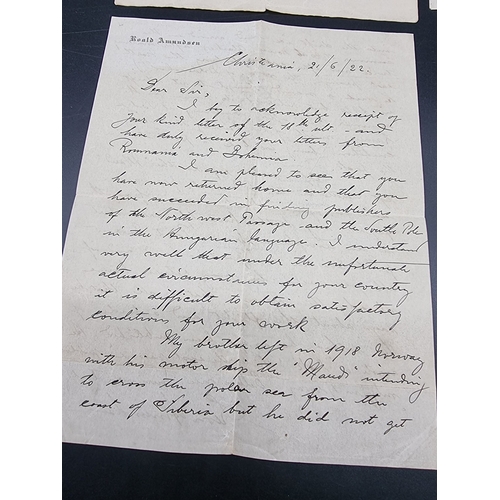 Roald Amundsen
Christiania, 2./6/22.
Dear Sir,
I beg to acknowledge receipt of
your kind letter of the 11th ult. - and
have duly received your letters from
Roumania and Bohemia
I am pleased to see that you
have now returned home and that you
have succeeded in finding publishers
of the North west Passage and the South Pole
in the Hungarian language. I understand
very well that under the unfortunate
actual circumstances for your country
it is difficult to obtain satisfactory
conditions for your work
My brother left in 1918 Norway
with his motor ship the "Maud" intending
to cross the polar sea from the
coast of Siberia but he did not get